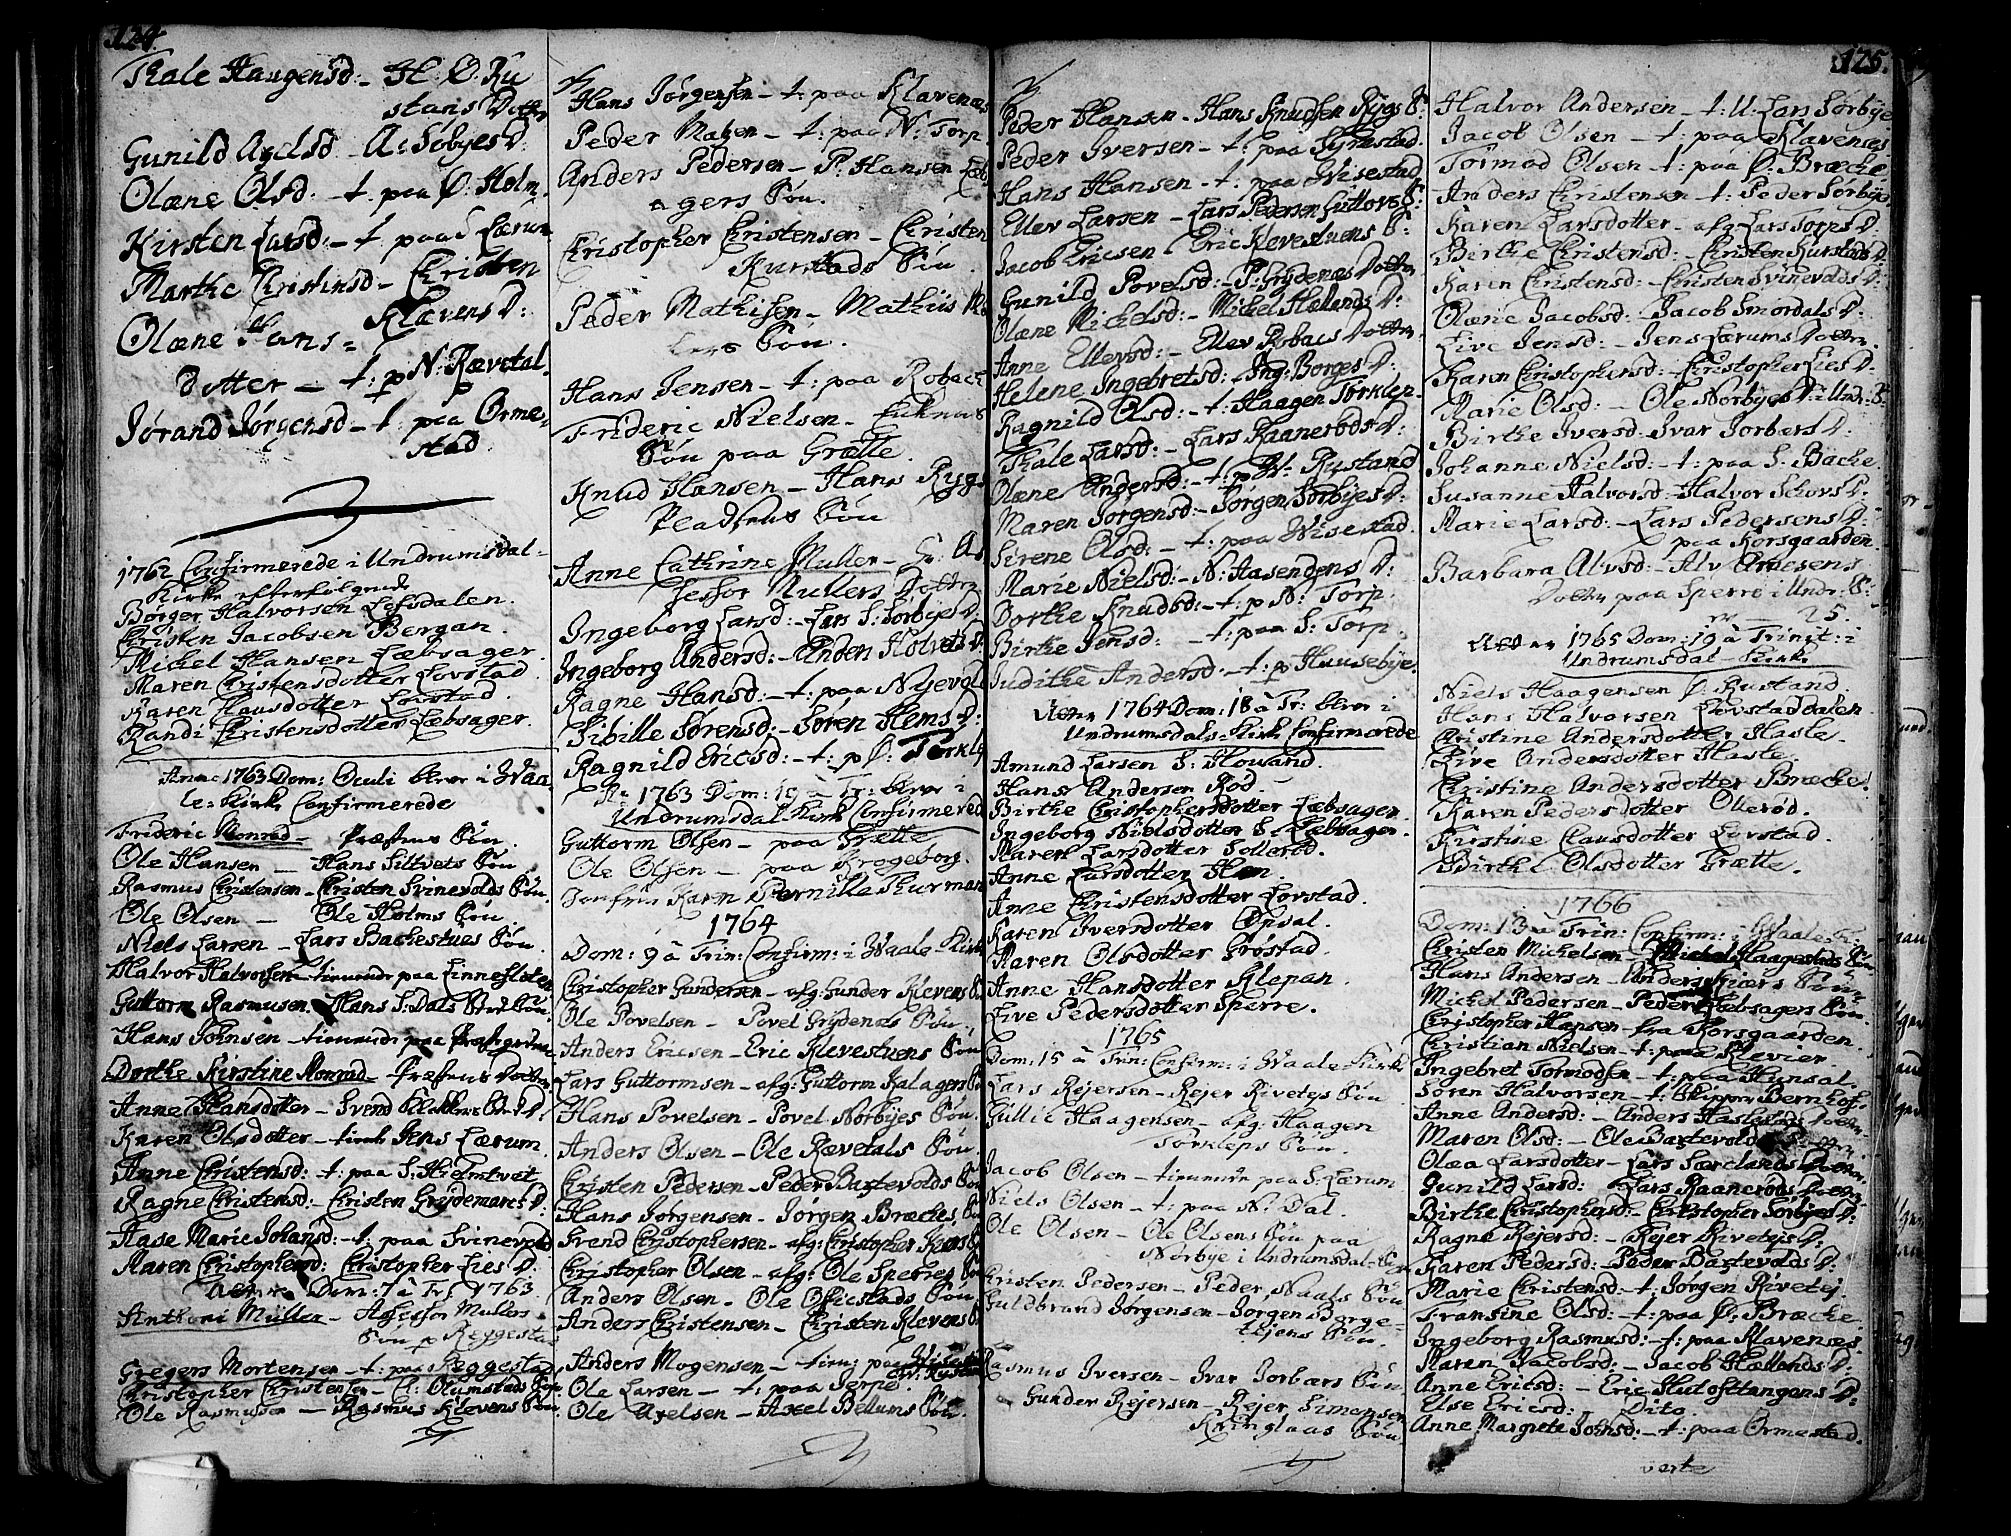 124.
Thale Haugensd: - H. Ø. Ru
stans Dotter
Gunild Axelsd - A: Søbyes D:
Olæne Olsd: - t. paa Ø. Holm.
Kirsten Larsd: - t. paa S. Lærum
Marthe Christensd - Christen
Klævens D:
Olæne Hans=
dotter - t: p N: Rævetal.
Jørand Jørgensd - t. paa Orme=
stad
1762 Confirmerede i Undrumsdal=
Kirke efterfølgende
Børger Halvorsen Lofsdalen.
Christen Jacobsen Bergan.
Michel Hansen Læbsager.
Maren Christensdotter Lovstad.
Karen Hansdotter Lovstad.
Randi Christensdotter Læbsager.
Anno 1763 Dom: Oculi blever i Waa=
le: Kirke Confirmerede
Frideric Monrad - Præstens Søn.
Ole Hansen - Hans Siltvets Søn
Rasmus Christensen - Christen Svinevolds Søn.
Ole Olsen - Ole Holms Søn.
Niels Larsen - Lars Bachestues Søn.
Halvor Halvorsen - tienende paa Linneflaten
Guttorm Rasmusen - Hans S: Dals Søn.
Hans Johnsen - tienende paa Præstegaarden
Dorthe Kirstine Monrad - Præstens Dotter
Anne Hansdotter - Svend D:
Karen Olsdotter - tienende Jens Lærum
Anne Christensd: - t: paa S: Hielmtvet
Ragne Christensd: Christen Grydemarcs D.
Aase Marie Johansd: - t. paa Svinevold
Maren Christophersd: Christopher Lies D:
Dom: 7 à Tr: 1763.
Anthoni Müller - Assessor Mullers
Søn p Reggestad
Gregers Mortensen - t: paa Reggestad
Christopher Christensen - C: Olumstads Søn
Ole Rasmusen - Rasmus Klevens Søn
Hans Jørgensen - t: paa Klavenæs
Peder Matsen - t: paa N: Torp
Anders Pedersen - P: Hansen Læbs
agers Søn.
Christopher Christensen - Christen
Kurstads Søn.
Peder Mathisen - Mathiis
Søn.
Hans Jensen - t: paa Roback
Frideric Nielsen -
Søn paa Grætte.
Knud Hansen - Hans Rygs
Pladsens Søn
Anne Cathrine Muller - Hr: As
sessor Mullers Dotter
Ingeborg Larsd: - Lars S: Sorbyes D:
Ingeborg Andersd: - Anden Holtvets D:
Ragne Hansd: - t: paa Nyevold
Sibille Sørensd: - Søren Hems D:
Ragnild Ericsd: - t: p Ø: Torklep
Ao 1763 Dom: 19 à Tr: blever i
Undrumsdal Kirke Confirmerede
Guttorm Olsen - paa Grætte
Ole Olsen - paa Brogeborg.
Jomfru Karen Pernille Thurman
1764
Dom: 9 à Trin: Confirm: i Waale Kirke
Christopher Gundersen - afg: Gunder Klevens S.
Ole Povelsen - Povel Grydenæs Søn.
Anders Ericsen - Eric Klevestuens Søn
Lars Guttormsen - afg: Guttorm Kalagers S.
Hans Povelsen - Povel Norbyes Søn.
Anders Olsen - Ole Rævetals Søn.
Christen Pedersen - Peder Bastevolds Søn
Hans Jørgensen - Jørgen Bræches Søn
Svend Christophersen - afg: Christopher S
Christopher Olsen - afg: Ole Sperres Søn
Anders Olsen - Ole Søn
Anders Christensen - Christen Klevens S.
Anders Mogensen - tien: paa
Ole Larsen - t. paa Jerpe
Ole Axelsen - Axel Bellums Søn.
125.
Peder Hansen - Hans Knudsen Rygs S:
Peder Iversen - t: paa Syrestad.
Hans Hansen - t: paa Wisestad
Ellev Larsen - Lars Pedersen Guttovs S:
Jacob Ericsen Eric Klevestuens S:
Gunild Povelsd: - P: Grydenæs Dotter,
Olæne Michelsd: - Michel Hællands D:
Anne Ellevsd: - Ellev Robacs Dotter,
Helene Ingebretsd: - Ing: Borges D:
Ragnild Olsd: - t: Haagen Torklep.
Thale Larsd: - Lars Raanerøds D:
Olæne Andersd: - t: p W: Rustand
Maren Jørgensd: - Jørgen Sorbyes D:
Sirene Olsd: - t: paa Wisestad.
Marie Nielsd: - N: Aasendens D:
Dorthe Knudsd: - t: p N: Torp.
Birthe Jensd: - t: paa S: Torp.
Judithe Andersd: - t: p Huusebye.
1764 Dom: 18 à Tr: blever i
Undrumsdals Kirke Confirmerede
Amund Larsen S: Howand.
Hans Andersen Rød.
Birthe Christophersdotter Læbsager.
Ingeborg Nielsdotter S. Læbsager.
Maren Larsdotter Sollerød.
Anne Larsdotter Hæn.
Anne Christensdotter Lovstad.
Karen Iversdotter Opsal.
Karen Olsdotter Grøstad.
Anne Hansdotter Klepan.
Live Pedersdotter Sperre.
1765
Dom: 15 à Trin: Confirm: i Waale Kirke
Lars Rejersen - Rejer Rivetejs Søn
Gullic Haagensen - afg: Haagen
Torkleps Søn.
Jacob Olsen - tienende paa S: Lærum
Niels Olsen - t: paa N: Dal.
Ole Olsen - Ole Olsens Søn paa
Norbye i Undrumsdal
Christen Pedersen - Peder Naals Søn
Guldbrand Jørgensen - Jørgen Borge=
tejens Søn
Rasmus Iversen - Ivar Jorbærs Søn
Gunder Rejersen - Rejer Simonsen
Kringlaas Søn
Halvor Andersen - t: U: Lars Sørbye
Jacob Olsen - t: paa Klavenæs
Tormod Olsen - t: paa Ø: Bræche
Anders Christensen - t: Peder Sørbye
Karen Larsdotter - afg: Lars Torps D:
Birthe Christensd: - Christen Kurstads D:
Karen Christensd: - Christen Svinevolds D:
Olæne Jacobsd: - Jacob Smordals D:
Live Jensd: - Jens Lærums Dotter.
Karen Christophersd: - Christopher Lies D:
Marie Olsd: - Ole Norbyes D: i Undr: S:
Birthe Iversd: Ivar Jorbers D:
Johanne Nielsd: - t: paa S. Bache.
Susanne Halvorsd - Halvor Schovs D:
Marie Larsd: - Lars Pedersens D:
paa Korsgaarden.
Barbara Alvsd: - Alv Arnesens
Dotter paa Sperre i Undr: S:
25.
1765 Dom: 19 à Trinit: i
Undrumsdal - Kirke
Niels Haagensen Ø: Rustand.
Hans Halvorsen Lovstaddalen.
Christine Andersdotter Haste.
Live Andersdotter Haste.
Christine Andersdotter Bræche.
Karen Pedersdotter Ollerød.
Kirstine Clausdotter Lovstad.
Birthe Olsdotter Grætte.
1766
Dom: 13 à Trin: Confirm: i Waale Kirke
Christen Michelsen - Michel Haagestads Søn
Hans Andersen - Anders Kiærs Søn
Michel Pedersen - Peder Læbsagers Søn.
Christopher Hansen - fra Korsgaarden.
Christian Nielsen - t: paa Klevier
Ingebret Tormodsen - t: paa Hunsal.
Søren Halvorsen - t: Skipper Bernhof.
Anne Andersd: - Anders Haslestads Dotter
Maren Olsd: - Ole Bastevolds
Olea Larsdotter - Lars Særclands Dotter
Gunild Larsd: Lars Raanerøds Dotter
Birthe Christophersd: Christopher Sorbyes D:
Ragne Rejersd: - Rejer Rivetejs D:
Karen Pedersd: - Peder Bastevolds D.
Marie Christensd: - t: Jørgen Rivetej.
Fransine Olsd: - t: paa Ø: Bræche.
Ingeborg Rasmusd: - t: paa Klavenæs.
Karen Jacobsd: - Jacob Hællands D:
Anne Ericsd: - Eric Hutoftangens D:
Else Ericsd: Dito
Anne Margrete Johsd: - t: paa Ormestad.
verte